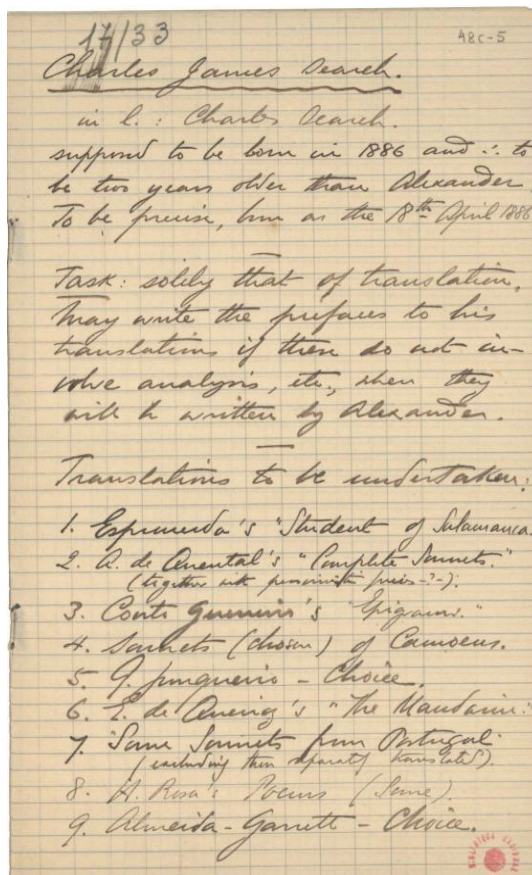 17/33
48C-5
Charles James Search.
in l.: Charles Search.
supposed to be born in 1886 and ∴ to
be two years older than Alexander
To be precise, born on the 18th April 1886
Task: solely that of translation.
May write the prefaces to his
translations if these do not in-
volve analysis, etc., when they
will be written by Alexander.
Translations to be undertaken:
1. Espronceda's "Student of Salamanca.
2. A. de Quental's "Complete Sonnets."
(together with
3. Conte Guerreiro's "Epigrams."
4. Sonnets (chosen) of Camoens.
5. G. Junqueiro - Choice.
6. E. de Queiroz's "The Mandarin."
7. "Some Sonnets from Portugal"
(excluding those separately translated).
8. H. Rosa's Poems (Some).
9. Almeida-Garrett - Choice.